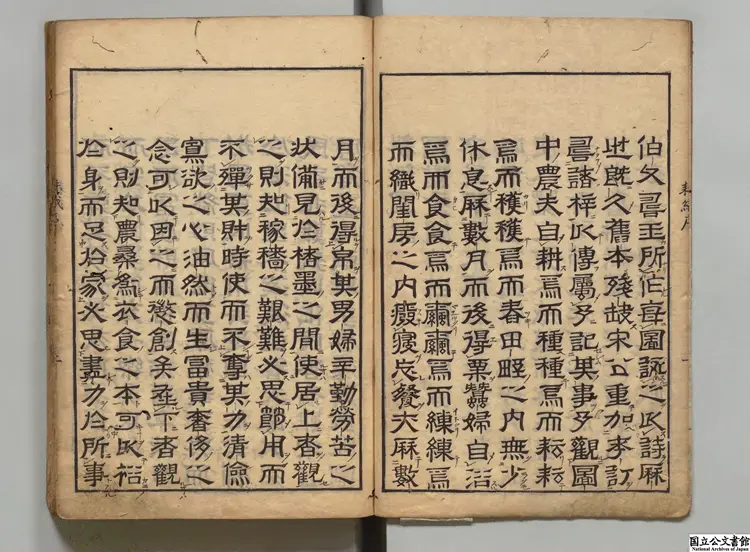 伯父壽玉所作每圖詠之以詩厤
世旣久舊本殘缺宋公重加考訂
壽諸梓以傳屬予記其事予觀圖
中農夫自耕焉而種種焉而耘耘
焉而穫穫焉而舂田野之内無少
休息厤數月而後得粟蠶婦自浴
焉而食食焉而繭繭焉而練練焉
而織閨房之内癈寢忘餐亦厤數
月而後得帛其男婦辛勤勞苦之
狀備見於楮墨之間使居上者觀
之則知稼穡之艱難必思節用而
不殫其財時使而不奪其力清儉
寡欲之心油然而生冨貴奢侈之
念可以因之而懲創矣在下者觀
之則知農桑爲衣食之本可以裕
於身而足於家必思盡力於所事
国立公文書館
National Archives of Japan